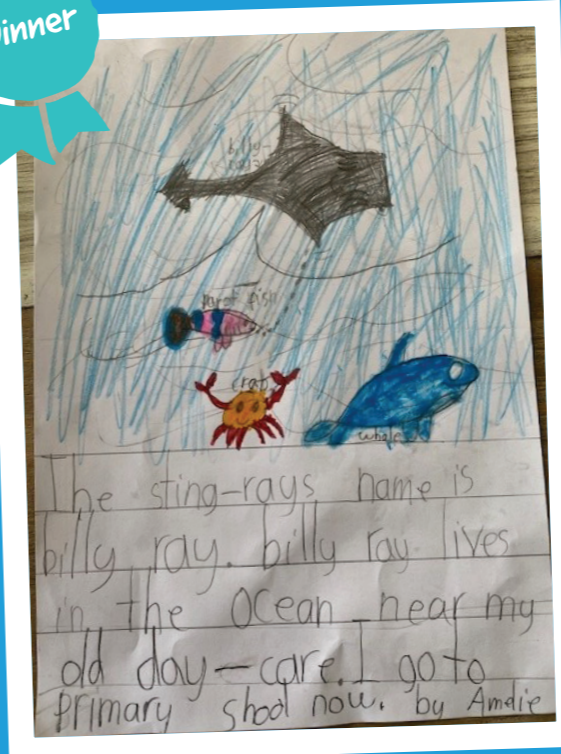 inner
billy-
parot fish
crab
whale
The sting-rays name is
billy ray. billy ray lives
in the ocean near my
old day-care. I go to
primary shool now. by Amelie